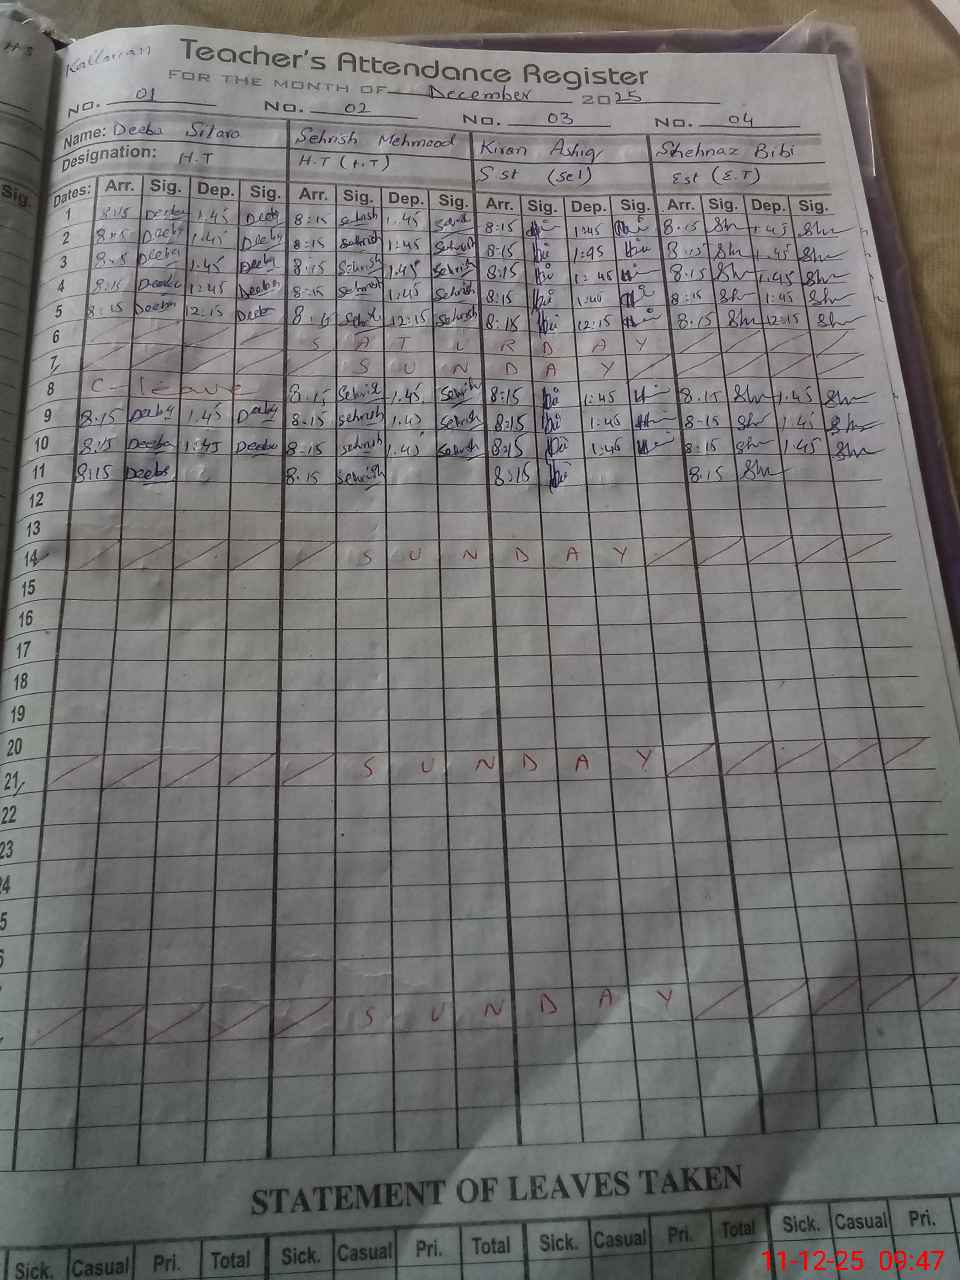 Kallarian Teacher's Attendance Register
FOR THE MONTH OF December 2025
NO. 01 NO. 02 NO. 03 NO. 04
Name: Deeba Sitara Sehrish Mehmood Kiran Ashiq Shehnaz Bibi
Designation: H.T H.T (P.T) S.st (Sci) Est (E.T)
Dates: Arr. Sig. Dep. Sig. Arr. Sig. Dep. Sig. Arr. Sig. Dep. Sig. Arr. Sig. Dep. Sig.
1 8:15 Deeba 1.45 Deeba 8:15 Sehrish 1.45 Sehrish 8:15 1:45 8.15 Sh 1.45 Sh
2 8:15 Deeba 1:45 Deeba 8:15 Sehrish 1:45 Sehrish 8:15 1:45 8:15 Sh 1.45 Sh
3 8:15 Deeba 1:45 Deeba 8:15 Sehrish 1.45 Sehrish 8:15 1:45 8:15 Sh 1.45 Sh
4 8:15 Deeba 1:45 Deeba 8:15 Sehrish 1:45 Sehrish 8:15 8:15 Sh 1:45 Sh
5 8:15 Deeba 12:15 Deeba 12:15 Sehrish 8:15 12:15 8.15 Sh 12:15 Sh
6 S A T U R D A Y
7 S U N D A Y
8 C-leave 8:15 Sehrish 1.45 Sehrish 8:15 1:45 8.15 Sh 1.45 Sh
9 8:15 Deeba 1.45 Deeba 8.15 Sehrish 1.45 Sehrish 8:15 1:45 8-15 Sh 1:45 Sh
10 8:15 Deeba 1:45 Deeba 8:15 Sehrish 1.45 Sehrish 8:15 1:45 8:15 Sh 1.45 Sh
11 8:15 Deeba 8.15 Sehrish 8:15 8.15 Sh
12
13
14 S U N D A Y
15
16
17
18
19
20
21 S U N D A Y
22
23
S U N D A Y
STATEMENT OF LEAVES TAKEN
Sick. Casual Pri. Total Sick. Casual Pri. Total Sick. Casual Pri. Total Sick. Casual Pri.
11-12-25 09:47